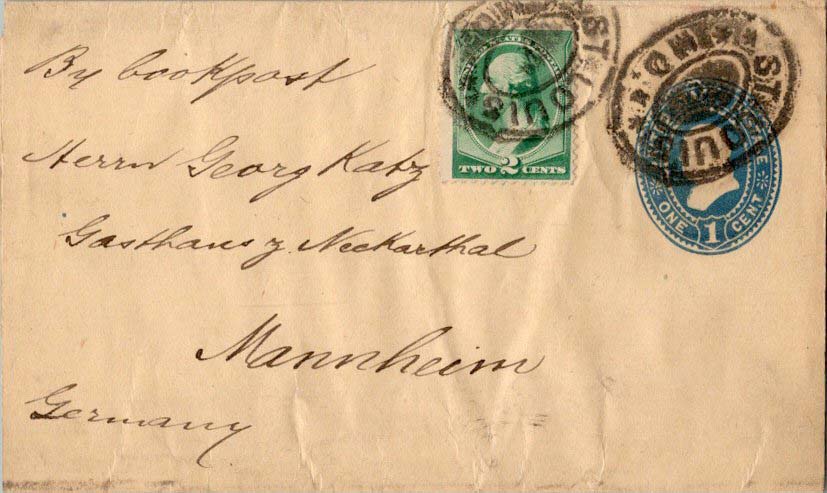 By bookpost
Herrn Georg Katz
Gasthaus z. Neckarthal
Mannheim
Germany
TWO 2 CENTS
ST. LOUIS
ST. LOUIS
ONE 1 CENT